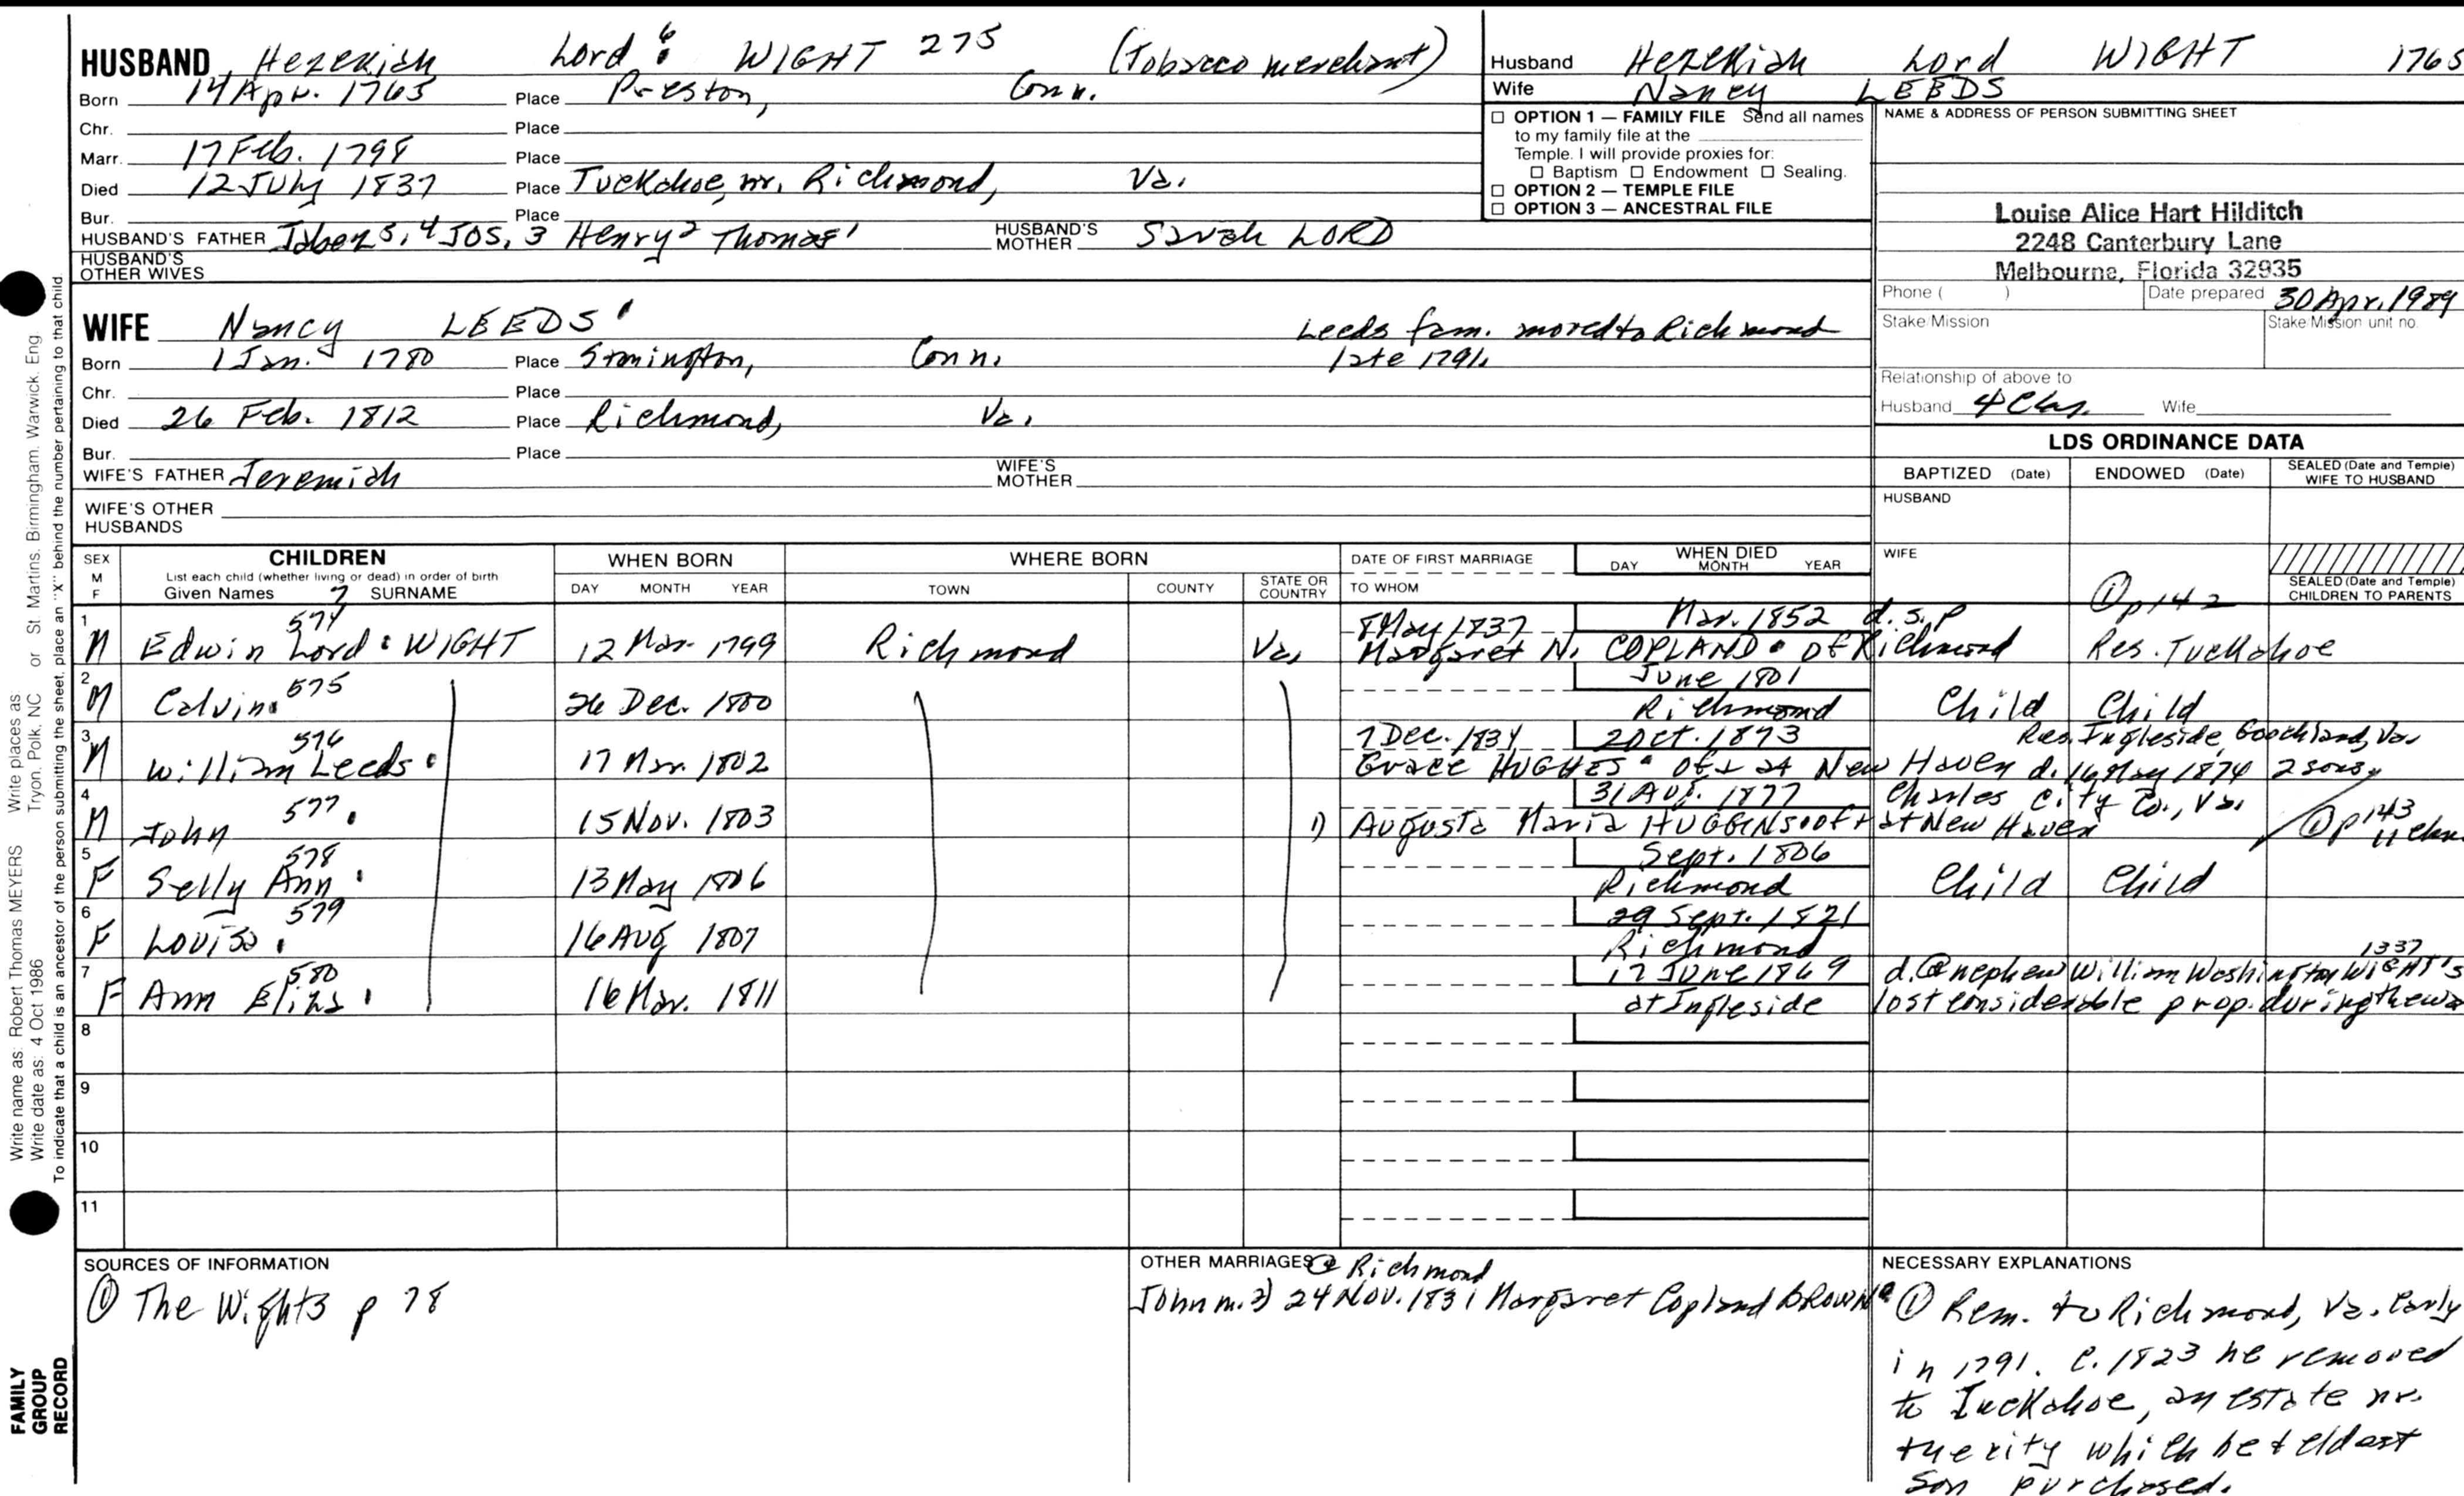 HUSBAND Hezekiah Lord 6 WIGHT 275 (Tobacco merchant)
Born 14 Apr. 1765 Place Preston, Conn.
Chr. Place
Marr. 17 Feb. 1798 Place
Died 12 July 1837 Place Tuckahoe, nr. Richmond, Va.
Bur. Place
HUSBAND'S FATHER Jabez 5, 4 Jos, 3 Henry 2 Thomas 1 HUSBAND'S MOTHER Sarah LORD
HUSBAND'S OTHER WIVES
WIFE Nancy LEEDS Leeds fam. moved to Richmond
Born 1 Jan. 1780 Place Stonington, Conn. late 1791.
Chr. Place
Died 26 Feb. 1812 Place Richmond, Va.
Bur. Place
WIFE'S FATHER Jeremiah WIFE'S MOTHER
WIFE'S OTHER HUSBANDS
Husband Hezekiah Lord WIGHT 1765
Wife Nancy LEEDS
☐ OPTION 1 — FAMILY FILE Send all names
to my family file at the
Temple. I will provide proxies for:
☐ Baptism ☐ Endowment ☐ Sealing.
☐ OPTION 2 — TEMPLE FILE
☐ OPTION 3 — ANCESTRAL FILE
NAME & ADDRESS OF PERSON SUBMITTING SHEET
Louise Alice Hart Hilditch
2248 Canterbury Lane
Melbourne, Florida 32935
Phone ( ) Date prepared 30 Apr. 1989
Stake/Mission Stake/Mission unit no.
Relationship of above to
Husband 4 C Wife
LDS ORDINANCE DATA
BAPTIZED (Date) ENDOWED (Date) SEALED (Date and Temple) WIFE TO HUSBAND
HUSBAND
WIFE
SEALED (Date and Temple) CHILDREN TO PARENTS
SEX M F CHILDREN WHEN BORN WHERE BORN DATE OF FIRST MARRIAGE WHEN DIED
List each child (whether living or dead) in order of birth
Given Names 7 SURNAME DAY MONTH YEAR TOWN COUNTY STATE OR COUNTRY TO WHOM DAY MONTH YEAR
1 574 8 May 1837 Mar. 1852 d.s.p ① p 142
M Edwin Lord WIGHT 12 Mar. 1799 Richmond Va. Margaret N. COPLAND of Richmond Res. Tuckahoe
2 575 June 1801
M Calvin 26 Dec. 1800 Richmond Child Child
3 576 7 Dec. 1834 2 Oct. 1873 Res. Ingleside, Goochland, Va.
M William Leeds 17 Mar. 1802 Grace HUGHES of & at New Haven d. 16 May 1874 2 sons
4 577 31 Aug. 1877 Charles City Co., Va.
M John 15 Nov. 1803 1) Augusta Maria HUGGINS of & at New Haven ① p 143 11 chn.
5 578 Sept. 1806
F Sally Ann 13 May 1806 Richmond Child Child
6 579 29 Sept. 1821
F Louisa 16 Aug 1807 Richmond
7 580 17 June 1869 d. @ nephew William Washington WIGHT's 1337
F Ann Eliza 16 Mar. 1811 at Ingleside lost considerable prop. during the
8
9
10
11
SOURCES OF INFORMATION
① The Wights p 78
OTHER MARRIAGES @ Richmond
John m. 2) 24 Nov. 1831 Margaret Copland BROWN
NECESSARY EXPLANATIONS
① Rem. to Richmond, Va. early
in 1791. C. 1823 he removed
to Tuckahoe, an estate nr.
the city which he & eldest
son purchased.
Write name as: Robert Thomas MEYERS Write places as St Martins. Birmingham. Warwick. Eng
Write date as: 4 Oct 1986 Tryon, Polk, NC or
To indicate that a child is an ancestor of the person submitting the sheet, place an "X" behind the number pertaining to that child.
FAMILY
GROUP
RECORD